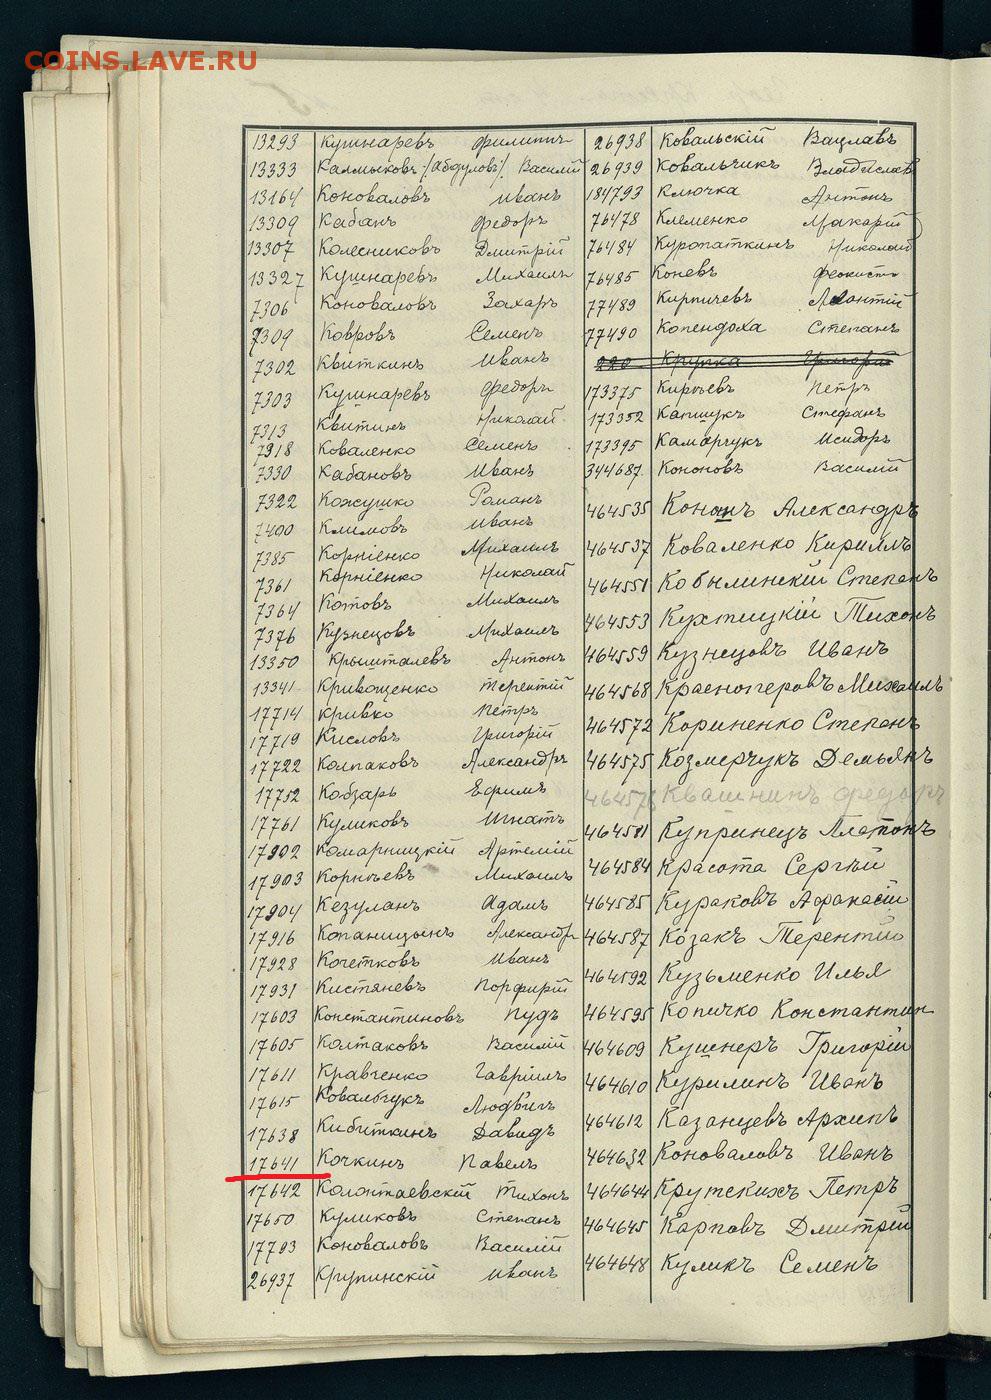 COINS.LAVE.RU
13293 Кушнаревъ Филиппъ
13333 Калмыковъ /Абдуловъ/. Василій
13164 Коноваловъ Иванъ
13309 Кабанъ Федоръ
13307 Колесниковъ Дмитрій
13327 Кушнаревъ Михаилъ
7306 Коноваловъ Захаръ
7309 Ковровъ Семенъ
7302 Квиткинъ Иванъ
7303 Кушнаревъ Федоръ
7313 Квитинъ Николай
7318 Коваленко Семенъ
7330 Кабановъ Иванъ
7322 Кожушко Романъ
7400 Климовъ Иванъ
7385 Корніенко Михаилъ
7361 Корніенко Николай
7364 Котовъ Михаилъ
7376 Кузнецовъ Михаилъ
13350 Крышталевъ Антонъ
13341 Кривошенко Терентій
17714 Кривко Петръ
17719 Кисловъ Григорій
17722 Колпаковъ Александръ
17752 Кобзарь Ефимъ
17761 Куликовъ Игнатъ
17902 Комарницкій Артемій
17903 Корнѣевъ Михаилъ
17904 Кезуланъ Адамъ
17916 Копаницынъ Александръ
17928 Кочетковъ Иванъ
17931 Кистяневъ Порфирій
17603 Константиновъ Пудъ
17605 Колтаковъ Василій
17611 Кравченко Гавріилъ
17615 Ковальчукъ Людвигъ
17638 Кибиткинъ Давидъ
17641 Кочкинъ Павелъ
17642 Колонтаевскій Тихонъ
17650 Куликовъ Степанъ
17793 Коноваловъ Василій
26937 Крупинскій Иванъ
26938 Ковальскій Вацлавъ
26939 Ковальчикъ Владиславъ
184793 Ключка Антонъ
76478 Клеменко Макарій
76484 Куропаткинъ Николай
76485 Коневъ Феоктистъ
77489 Кирпичевъ Леонтій
77490 Копендоха Степанъ
220 Крупка Григорій
173375 Кирѣевъ Петръ
173352 Капшукъ Стефанъ
173395 Камарчукъ Исидоръ
344687 Кононовъ Василій
464535 Конанъ Александръ
464537 Коваленко Кириллъ
464551 Кобылинскій Степанъ
464553 Кухтицкій Тихонъ
464559 Кузнецовъ Иванъ
464568 Красноперовъ Михаилъ
464572 Кориненко Степанъ
464575 Козмерчукъ Демьянъ
464576 Квашнинъ Федоръ
464581 Купринецъ Платонъ
464584 Красота Сергѣй
464585 Кураковъ Афанасій
464587 Козакъ Терентій
464592 Кузьменко Илья
464595 Копичко Константин
464609 Кушнеръ Григорій
464610 Курилинъ Иванъ
464612 Казанцевъ Архипъ
464632 Коноваловъ Иванъ
464644 Крутскихъ Петръ
464645 Карповъ Дмитрій
464648 Куликъ Семенъ